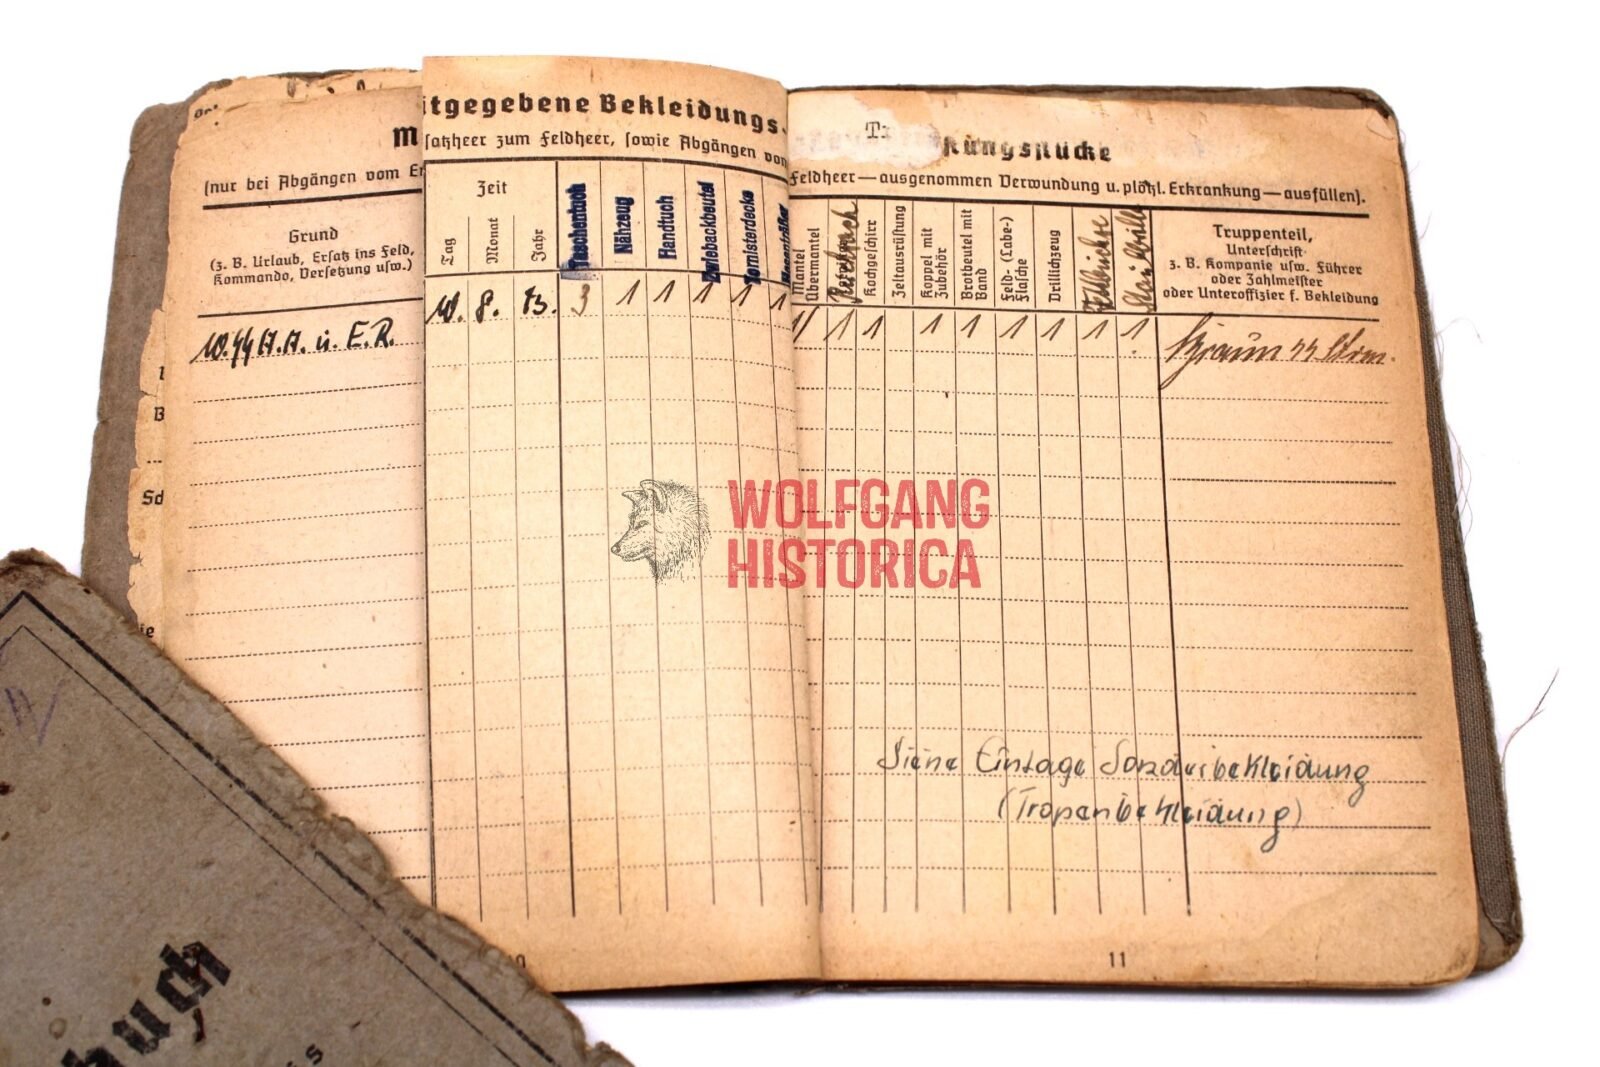 itgegebene Bekleidungs-
M
satzheer zum Feldheer, sowie Abgängen vom
(nur bei Abgängen vom Er
Grund
(z. B. Urlaub, Ersatz ins Feld,
Kommando, Versetzung usw.)
Zeit
Tag
Monat
Jahr
Taschentuch
Nähzeug
Handtuch
Zwiebackbeutel
Tornisterdecke
10. 8.
3 1 1 1 1 1
A.A. u. E.R.
B
Sd
ie
rüstungsstücke
Feldheer — ausgenommen Verwundung u. plötzl. Erkrankung — ausfüllen).
Mantel
Übermantel
Kochgeschirr
Zeltausrüstung
Koppel mit
Zubehör
Brotbeutel mit
Band
Feld- (Labe-)
Flasche
Drillichzeug
Truppenteil,
Unterschrift
z. B. Kompanie usw. Führer
oder Zahlmeister
oder Unteroffizier f. Bekleidung
1 1 1 1 1 1 1 1 1
WOLFGANG
HISTORICA
Siehe Einlage Sonderbekleidung
(Tropenbekleidung)
11
buch